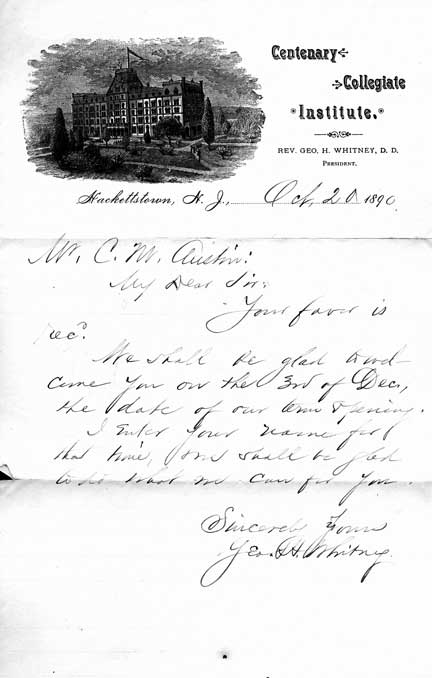 Centenary
Collegiate
Institute.
REV. GEO. H. WHITNEY, D. D.
PRESIDENT.
Hackettstown, N. J., Oct. 20 1890
Mr. C. M. Austin:
My Dear Sir:
Your favor is
rec'd.
We shall be glad to wel-
come you on the 3rd of Dec.,
the date of our term opening.
I enter your name for
that time, and shall be glad
to do what we can for you.
Sincerely Yours
Geo. H. Whitney.